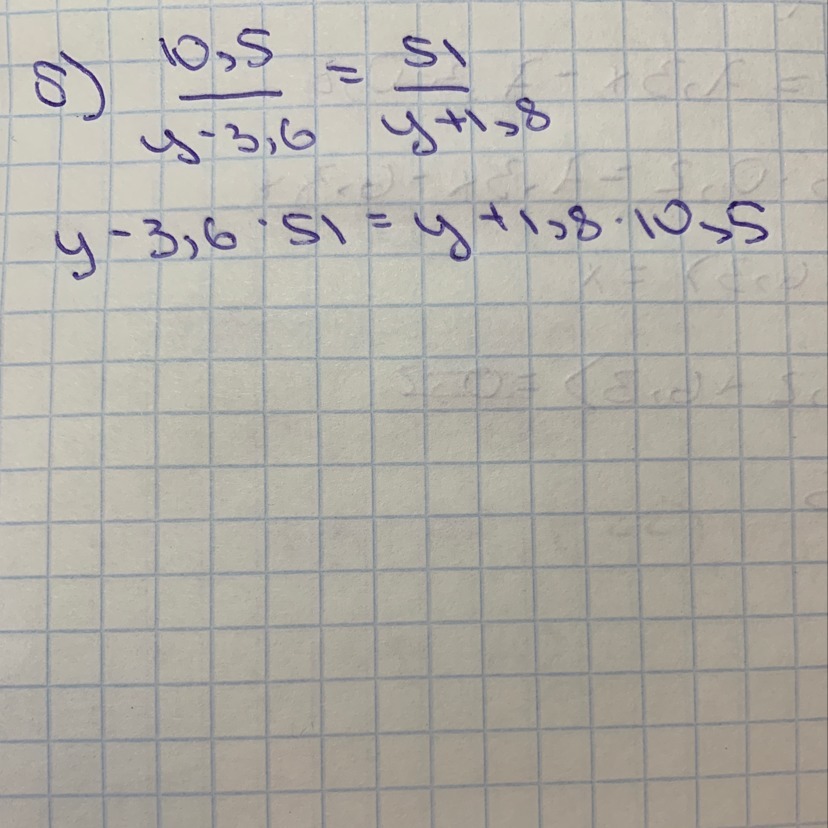 б) 10,5 / y-3,6 = 51 / y+1,8
y-3,6·51=y+1,8·10,5